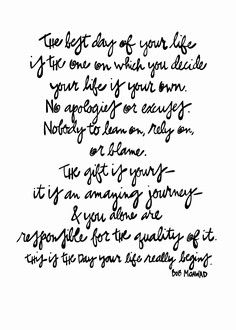 The best day of your life
is the one on which you decide
your life is your own.
No apologies or excuses.
Nobody to lean on, rely on,
or blame.
The gift is yours-
it is an amazing journey
& you alone are
responsible for the quality of it.
This is the Day your life really begins.
Bob Moawad